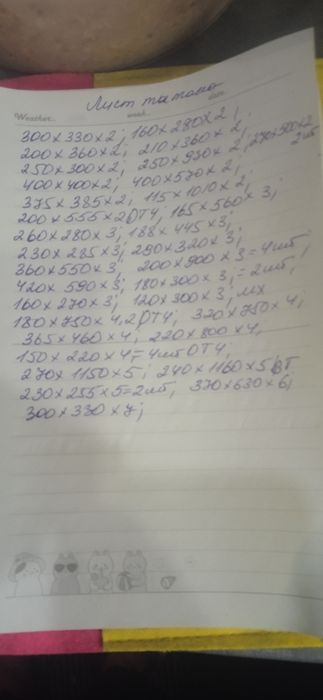 Лист титана
Weather
300×330×2; 160×280×2;
200×360×2; 210×360×2;
250×300×2; 250×930×2; 270×900×2
2шт
400×400×2; 400×570×2;
375×385×2; 115×1010×2;
200×555×2ОТ4; 165×560×3;
260×280×3; 188×445×3;
230×285×3; 290×320×3;
360×550×3; 200×900×3=4шт;
420×590×3; 180×300×3;=2шт,
160×270×3; 120×300×3,
180×750×4,2ОТ4; 320×750×4;
365×460×4; 220×800×4,
150×220×4;=4шт ОТ4;
270×1150×5; 240×1160×5, ВТ
230×255×5=2шт, 370×630×6;
300×330×7;